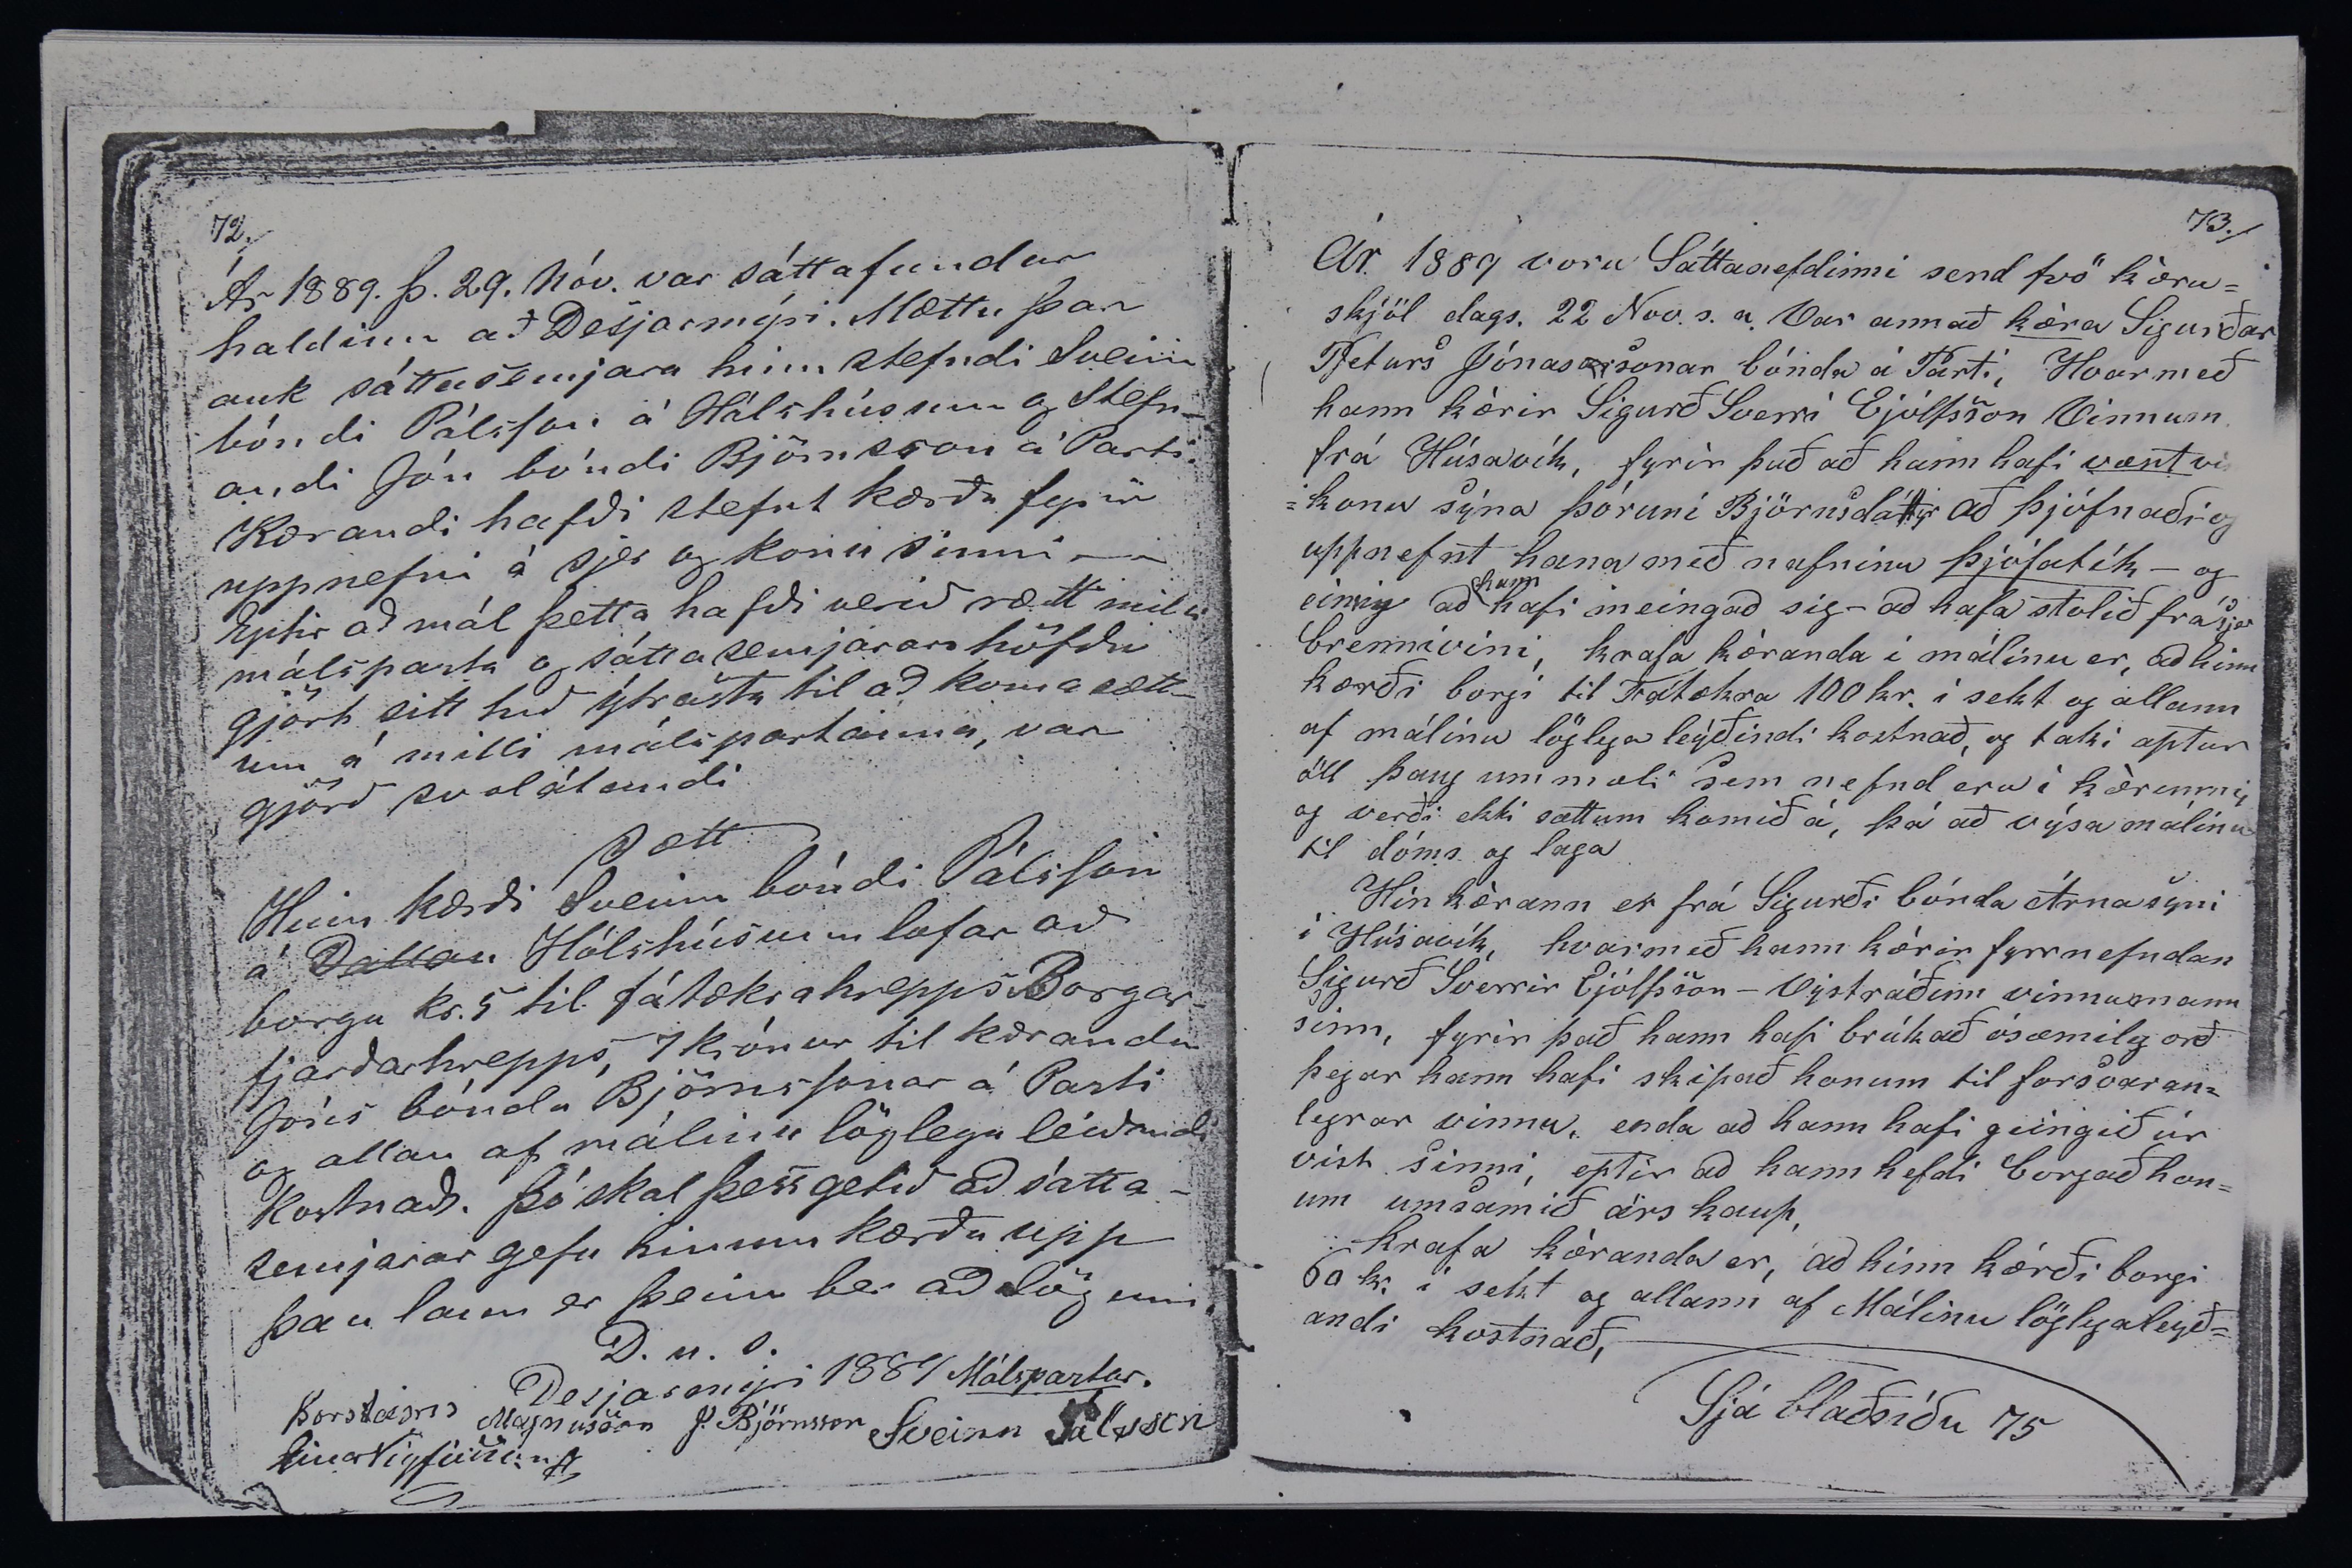 72.
Ár 1889. þ. 29. Nóv. var sáttafundur
haldinn að Desjarmýri. Mættu þar
auk sáttasemjara hinn stefndi Sveinn
bóndi Pálsson á Hálshúsum og Stefn-
andi Jón bóndi Björnsson á Parti.
Kærandi hafði stefnt kærða fyrir
uppnefni á sjer og konu sinni —
Eptir að mál þetta hafði verið rætt milli
málsparta og sáttasemjarar höfðu
gjört sitt hið ýtrasta til að koma sætt-
um á milli málspartanna, var
gjörð svolátandi
Sætt
Hinn kærði Sveinn bóndi Pálsson
á Dallan Hólshúsum lofar að
borga kr. 5 til fátækrahrepps Borgar-
fjarðarhrepps, 7 krónur til kæranda
Jóns bónda Björnssonar á Parti
og allan af málinu löglega leiðandi
kostnað. Þó skal þess getið að sátta-
semjarar gefa hinum kærða upp
þau laun er þeim ber að lögum.
D. u. s.
Desjarmýri 1889 Málspartar.
Þorsteinn Magnússon J. Björnsson Sveinn Pálsson
Einar Vigfússon
73.
Ár 1889 voru Sáttanefdinni send tvö kæru=
skjöl dags. 22 Nov. s. a. Var annað kæra Sigurðar
Pjeturs Jónassonar bónda á Parti, Hvarmeð
hann kærir Sigurð Sverri Ejólfsson Vinnum
frá Húsavík, fyrir það að hann hafi vænt vi
=konu sýna Þóruni Björnsdáttýr að þjófnaði og
uppnefnt hana með nafninu þjófatík — og
einnig að hann hafi meingað sig — að hafa stolið frá sjer
brennivíni, krafa kæranda í málinu er, að hinn
kærði borgi til Fátækra 100 kr. í sekt og allann
af málinu löglega leýðindi kostnað, og taki aptur
öll þaug ummæli sem nefnd eru í kærunni,
og verði ekki sættum komið á, þá að výsa málinu
til dóms og laga
Hin kærann er frá Sigurði bónda Árnasyni
í Húsavík, hvarmeð hann kærir fyrrnefndan
Sigurð Sverrir Ejólfsson — Výstráðinn vinnumann
sinn, fyrir það hann hafi brúkað ósæmileg orð
þegar hann hafi skipað honum til forsvaran=
legrar vinnu, enda að hann hafi geingið úr
vist sinni, eptir að hann hefdi borgað hon=
um umsamið árs kaup,
Krafa kæranda er, að hinn kærði borgi
60 kr. í sekt og allann af Málinu löglega leyð=
andi kostnað,
Sjá blaðsíðu 75